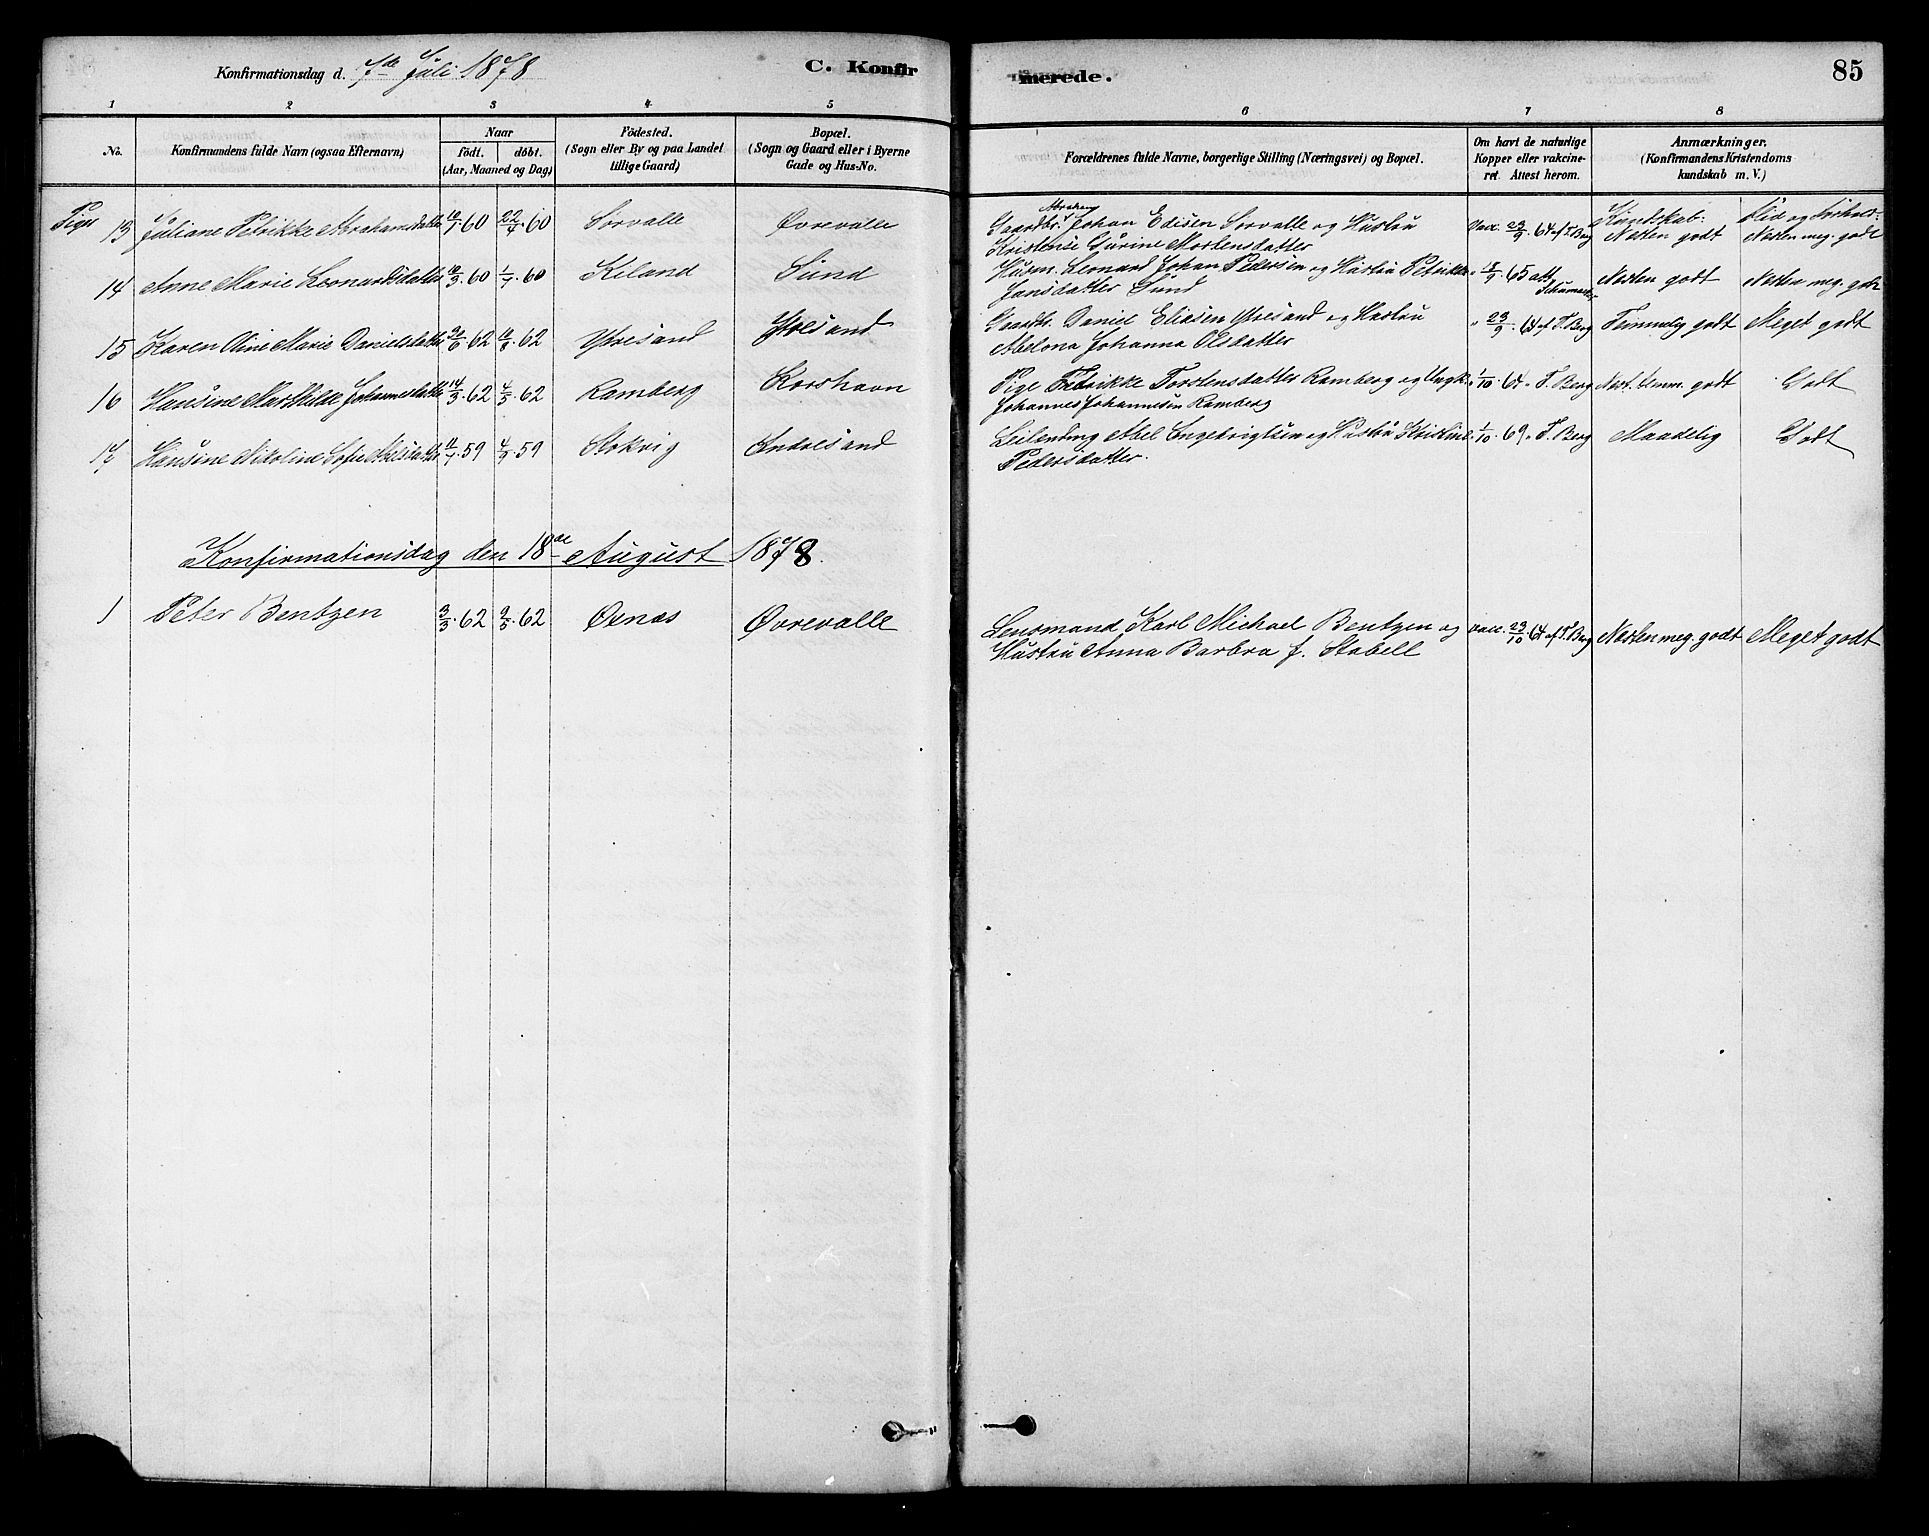 Konfirmationsdag d. 7de Juli 1878
C. Konfirmerede.
85
1 2 3 4 5 6 7 8
No.
Konfirmandens fulde Navn (ogsaa Efternavn)
Naar
födt. döbt.
(Aar, Maaned og Dag)
Födested.
(Sogn eller By og paa Landet
tillige Gaard)
Bopæl.
(Sogn og Gaard eller i Byerne
Gade og Hus-No.
Forældrenes fulde Navne, borgerlige Stilling (Næringsvei) og Bopæl.
Om havt de naturlige
Kopper eller vakcine-
ret. Attest herom.
Anmærkninger.
(Konfirmandens Kristendoms
kundskab m. V.)
Kundskab: Flid og Forhold:
Pige 13 Juliane Petrikke Abrahamsdatter 60 22/4 60 Sorvalle Øvrevalle Gaardbr. Abraham Johan Edisen Sorvalle og Hustru
Kristense Gurine Mortensdatter Vacc. 23/9 64 af T. Berg Næsten godt Næsten meg. godt
14 Anne Marie Leonardsdatter 60 1/7 60 Kiland Sund Husm. Leonard Johan Pedersen og Hustru Petrikke
Jansdatter Sund 65 att. Næsten godt Næsten meg. godt
15 Karen Oline Marie Danielsdatter 62 62 Ytresand Ytresand Gaardbr. Daniel Eliasen Ytresand og Hustru
Abelona Johanna Olsdatter " 23/9 64 af T. Berg Temmelig godt Meget godt
16 Hansine Marthilde Johannesdatter 14/3 62 4/5 62 Ramberg Korshavn Pige Fedrikke Torstensdatter Ramberg og Ungk.
Johannes Johannesen Ramberg " 1/10 64 " T. Berg Næst. temm. godt Godt
17 Hansine Nikoline Sofie Abelsdatter 11/7 59 4/9 59 Stokvig Indresand Leilending Abel Engebrigtsen og Hustru Kristine
Pedersdatter. 1/10 69 " T. Berg Maadelig Godt
Konfirmationsdag den 18de August 1878.
1 Peter Bentzen 3/3 62 9/5 62 Øenæs Øvrevalle Lensmand Karl Michael Bentzen og
Hustru Anna Barbra f. Stabell vacc. 23/10 64 af T. Berg Næsten meg. godt Meget godt